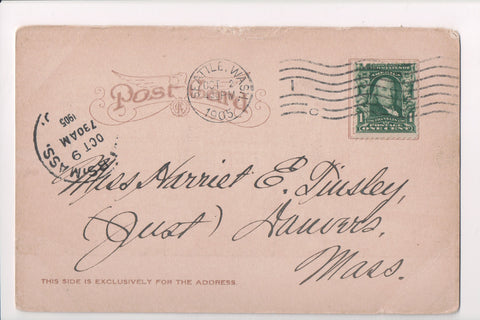 Post Card
SEATTLE, WASH.
1905
1 ONE CENT 1
MASS.
OCT 9
730AM
1905
Miss Harriet E. Tinsley,
(Just) Danvers,
Mass.
THIS SIDE IS EXCLUSIVELY FOR THE ADDRESS.